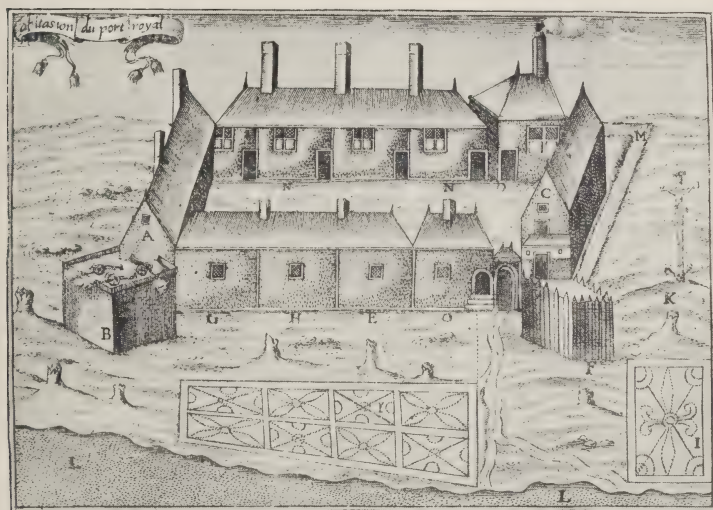 abitasion du port royal
M
N N D C
A
K
B
G H E O
F
Y
I
L L